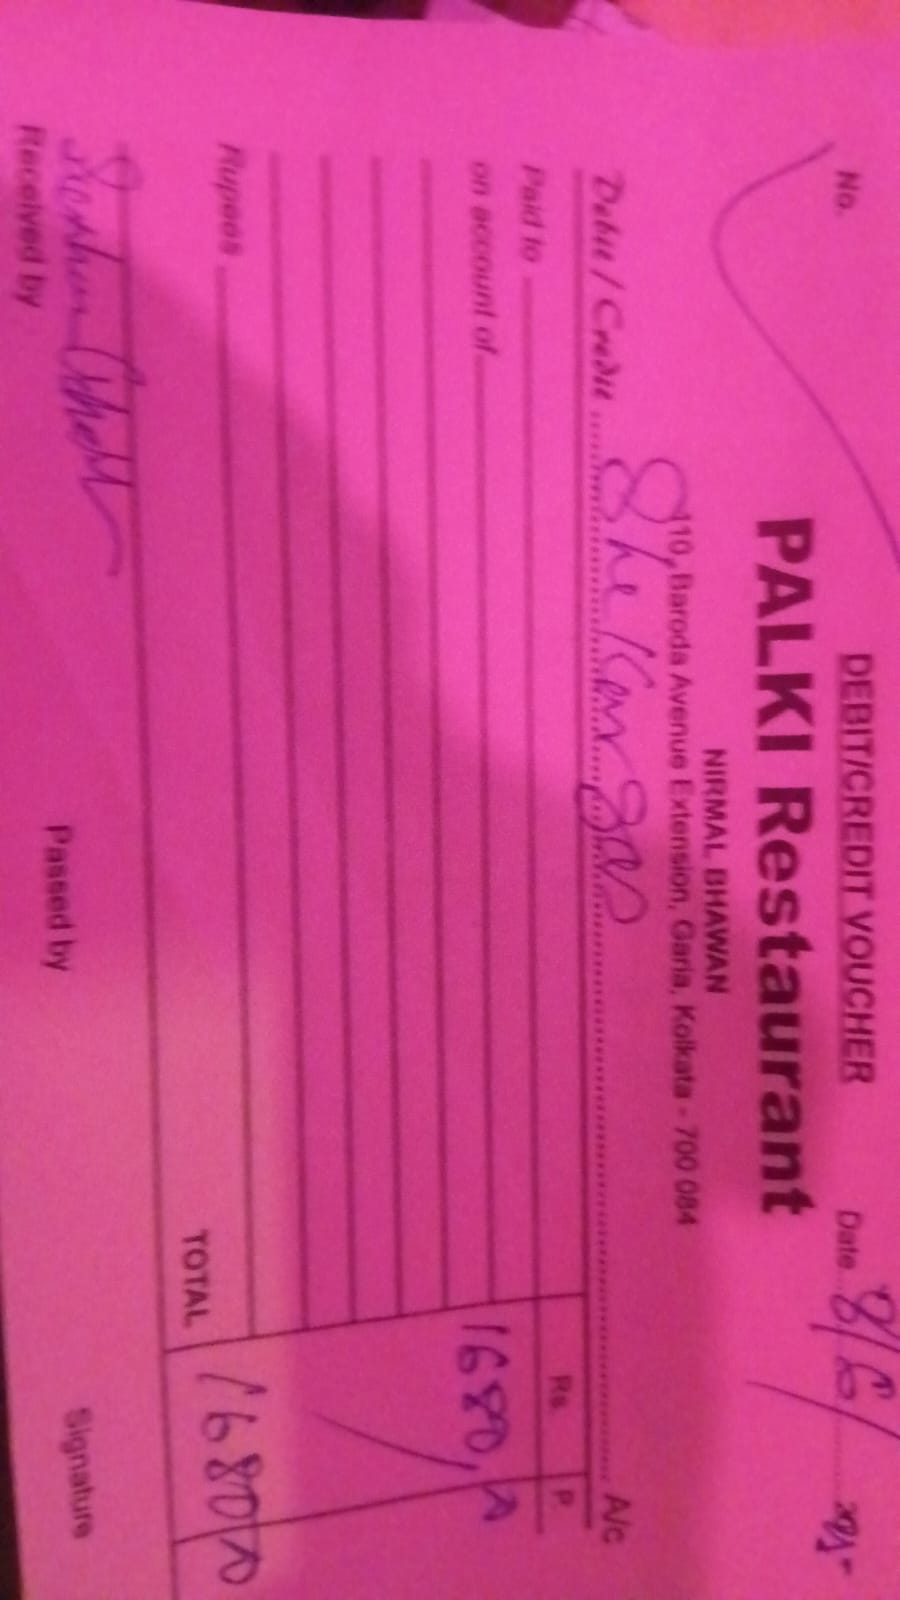 DEBIT/CREDIT VOUCHER
No.
Date 8/6/ 2025
PALKI Restaurant
NIRMAL BHAWAN
110, Baroda Avenue Extension, Garia, Kolkata - 700 084
Debit / Credit A/c
Paid to Rs. P.
on account of 1680,
Rupees
TOTAL 1680
Received by Passed by Signature